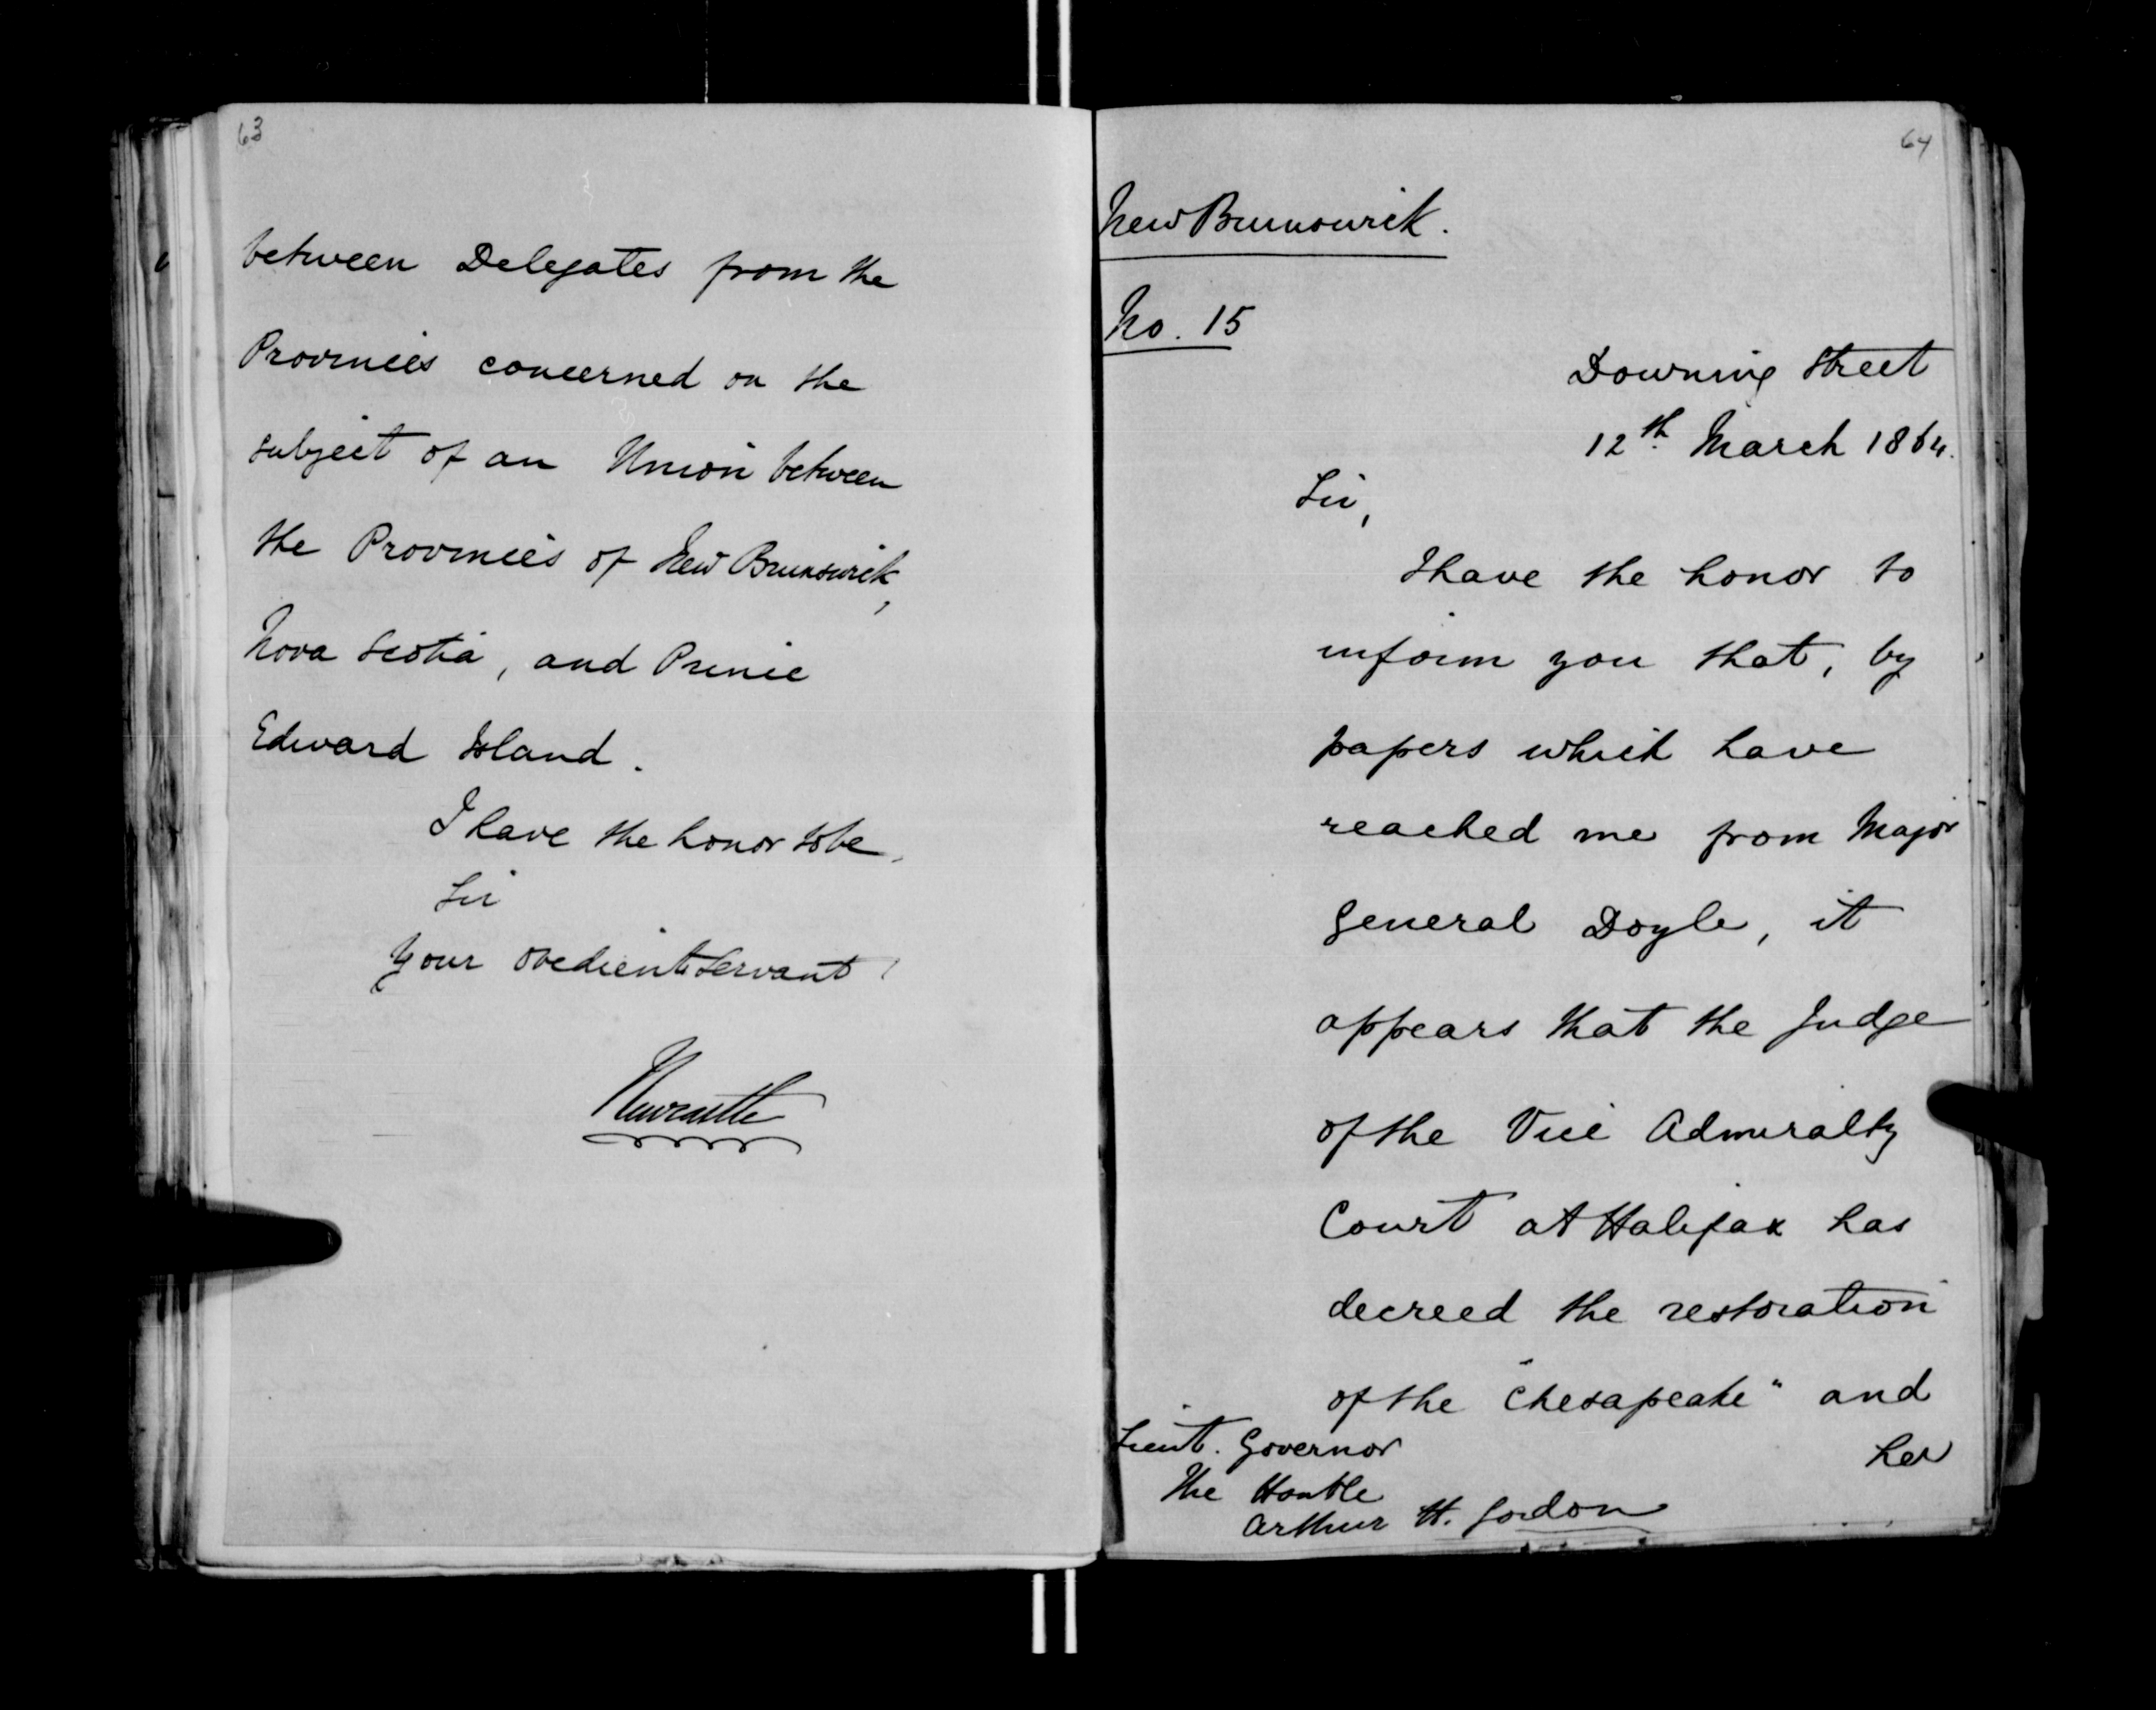 63
between Delegates from the
Provinces concerned on the
subject of an Union between
the Provinces of New Brunswick,
Nova Scotia, and Prince
Edward Island.
I have the honor to be,
Sir
Your obedient Servant,
Newcastle
64
New Brunswick.
No. 15
Downing Street
12th. March 1864.
Sir,
I have the honor to
inform you that, by
papers which have
reached me from Major
General Doyle, it
appears that the Judge
of the Vice Admiralty
Court at Halifax has
decreed the restoration
of the "Chesapeake" and
her
Lieut. Governor
The Honble
Arthur H. Gordon